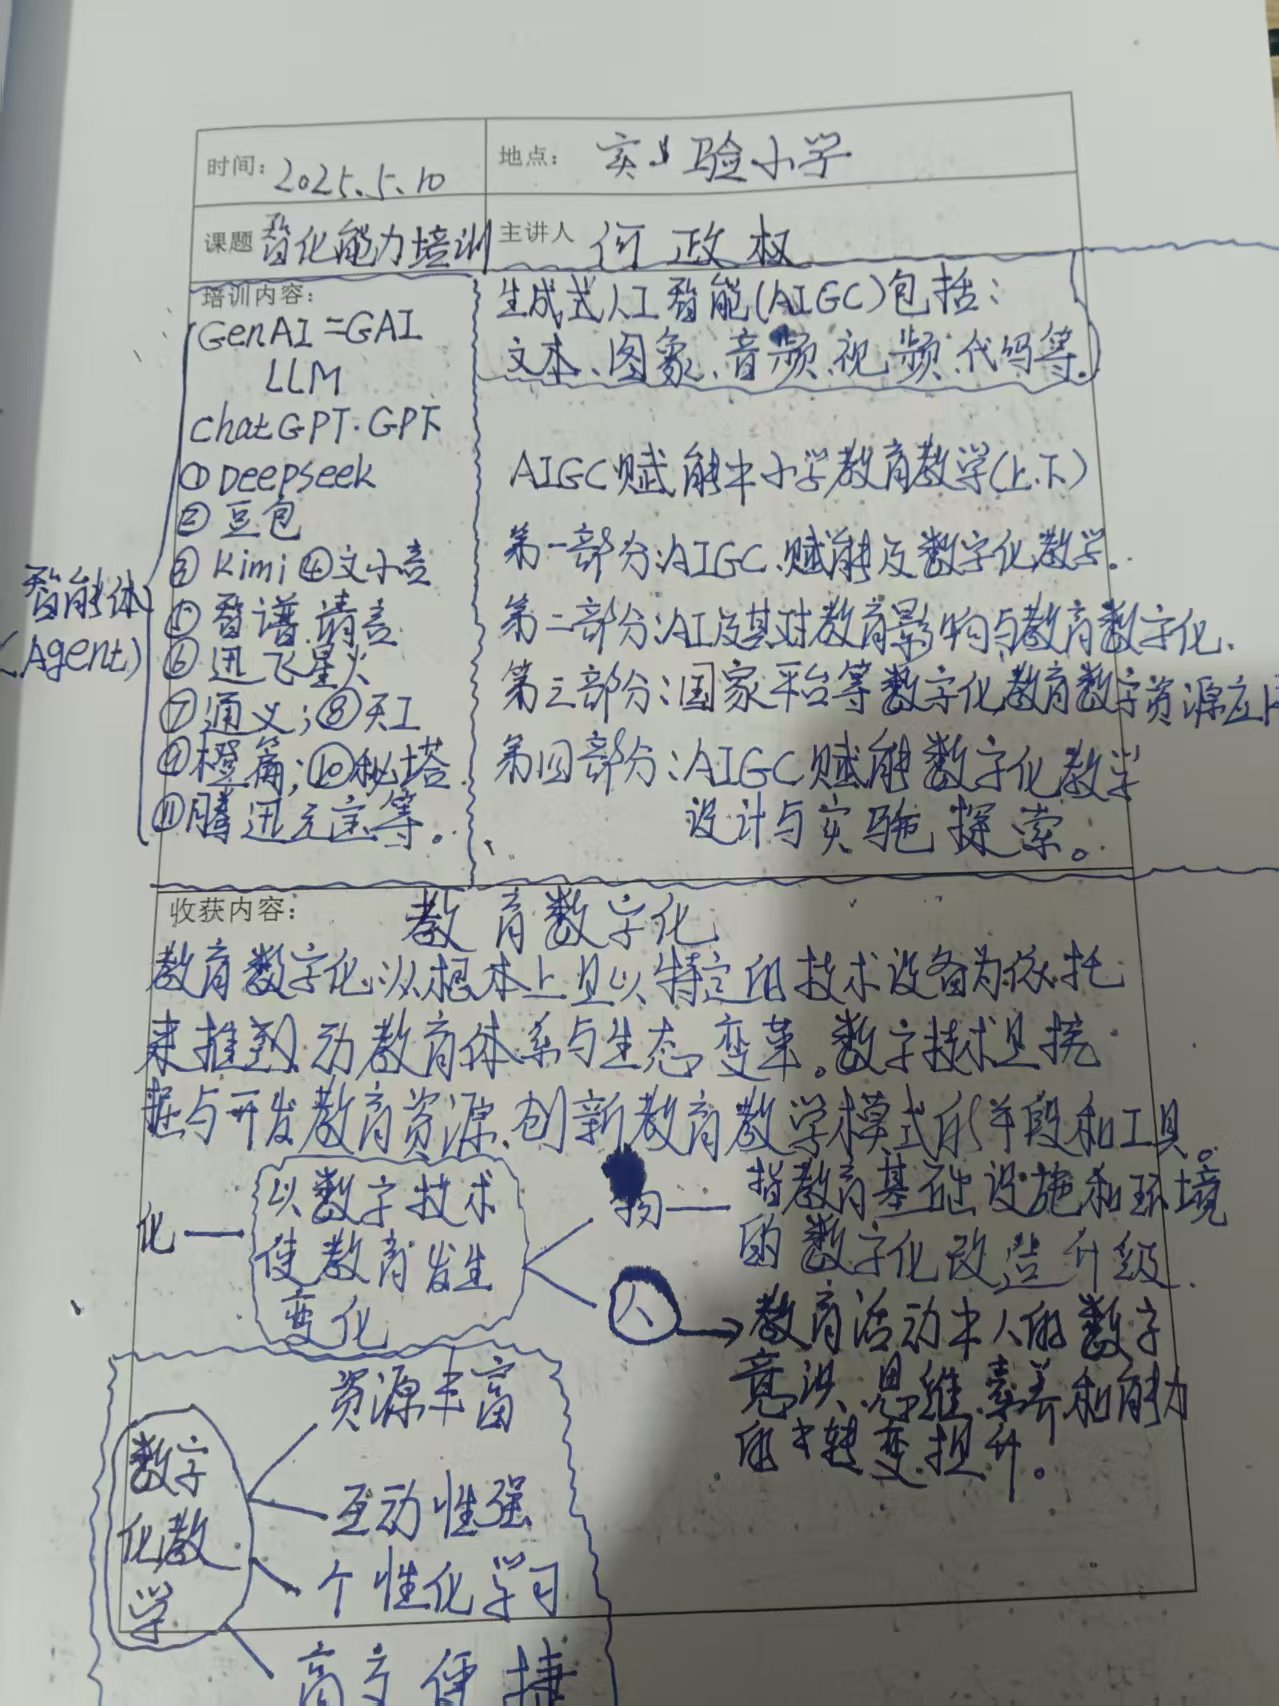 时间：2025.5.10
地点：实验小学
课题 智化能力培训
主讲人 何政权
培训内容：
GenAI=GAI
LLM
ChatGPT·GPT
①Deepseek
②豆包
③Kimi ④文小言
⑤智谱清言
⑥迅飞星火
⑦通义；⑧天工
⑨橙篇；⑩秘塔
⑪腾迅元宝等。
智能体
(Agent)
生成式人工智能(AIGC)包括：
文本、图象、音频、视频、代码等.
AIGC赋能中小学教育教学(上、下)
第一部分：AIGC赋能及数字化教学.
第二部分：AI及其对教育影响与教育数字化.
第三部分：国家平台等数字化教育数字资源应用
第四部分：AIGC赋能数字化教学
设计与实验探索。
收获内容：
教育数字化
教育数字化，从根本上且以特定的技术设备为依托
来推到动教育体系与生态变革。数字技术是挖
掘与开发教育资源、创新教育教学模式的手段和工具。
化
以数字技术
使教育发生
变化
物
指教育基础设施和环境
的数字化改造升级.
人
教育活动中人的数字
意识、思维、素养和能力
的转变提升。
数字
化教
学
资源丰富
互动性强
个性化学习
高交便捷